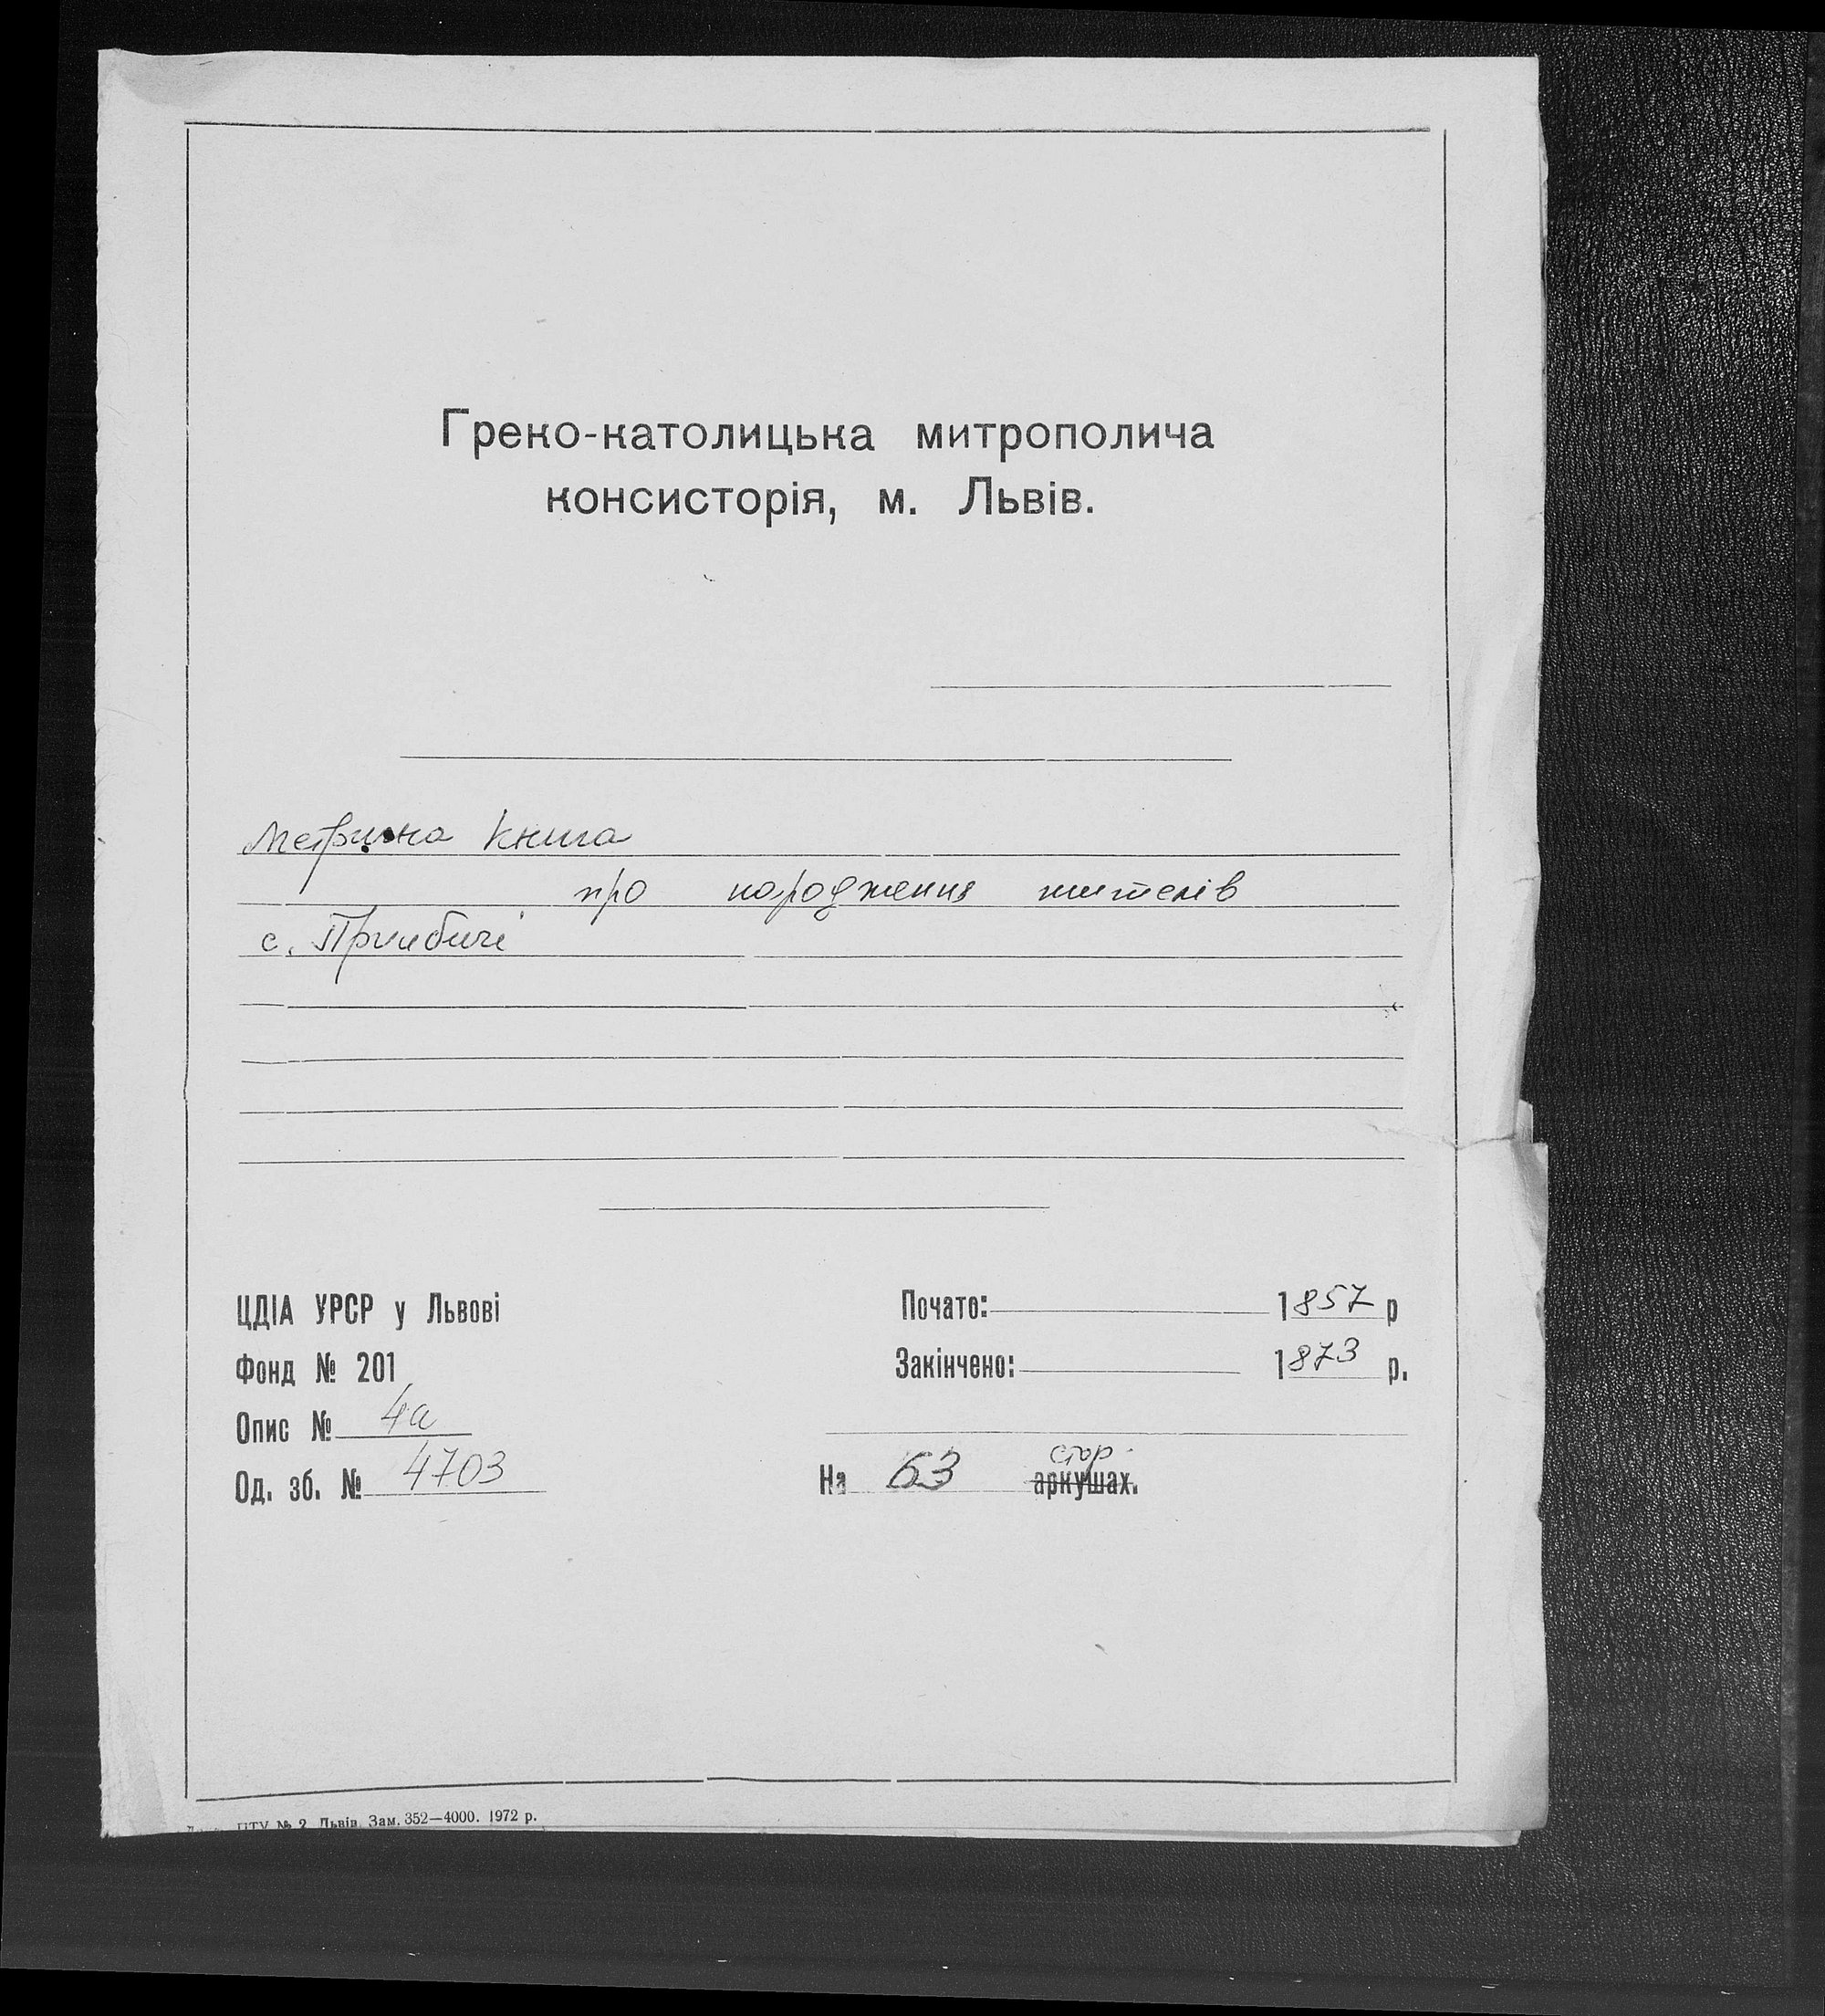 Греко-католицька митрополича
консисторія, м. Львів.
Метрична книга
про народження жителів
с. Прилбичі
ЦДІА УРСР у Львові
Фонд № 201
Опис № 4а
Од. зб. № 4703
Почато: 1857 р
Закінчено: 1873 р.
стор.
На 63 аркушах.
ПТУ № 2 Львів. Зам. 352—4000. 1972 р.